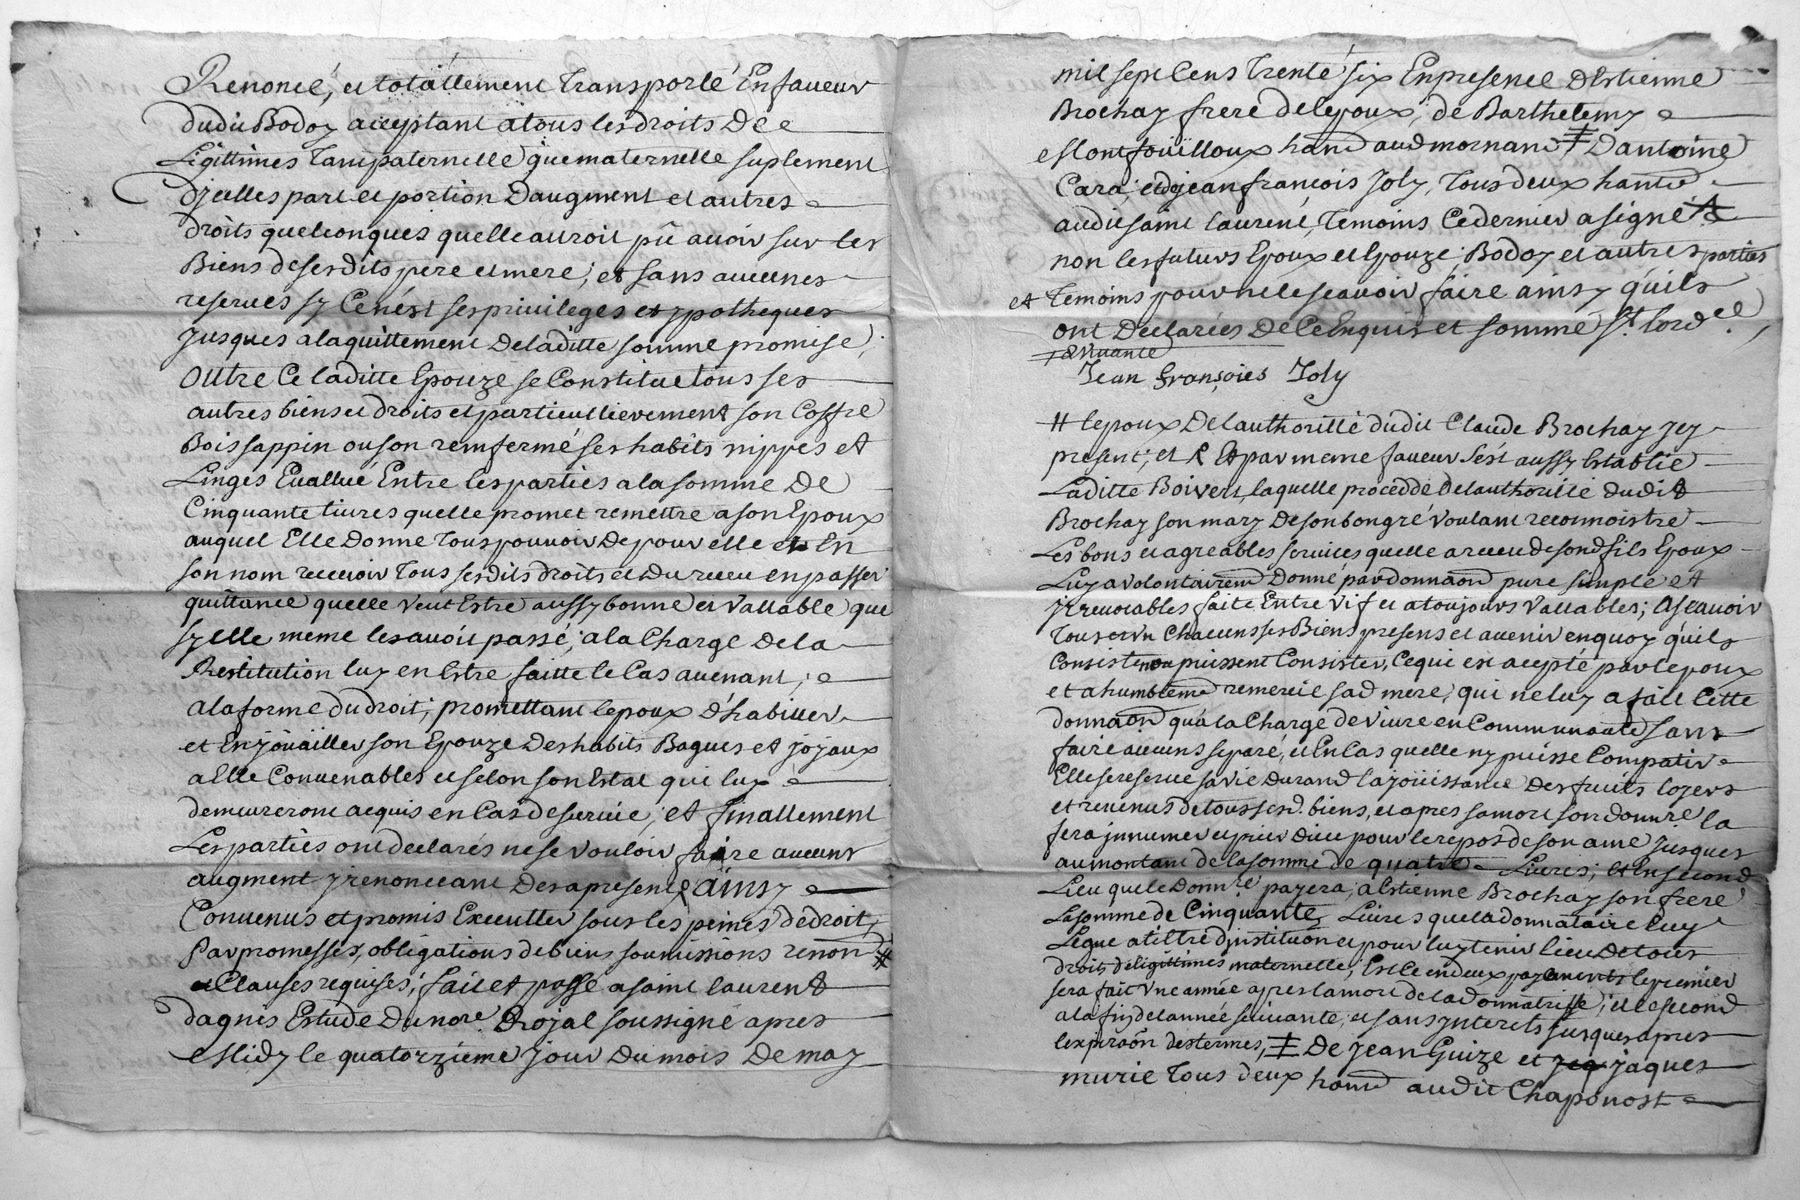 Renoncé, et totallement transporté En faveur
dudit Bodoy acceptant a tous les droits De
Légittimes tant paternelle que maternelle suplement
D'jcelles part et portion D'augment et autres
droits quelconques quelle auroit pû avoir sur les
Biens de sesdits pere et mere; et sans aucunes
reserves sy Ce n'ést ses privileges et ypotheques
Jusques a laquittement De laditte somme promise;
Outre Ce laditte Epouze se Constitue tous ses
autres biens et droits et particullierement son Coffre
Bois sappin ou son remfermé ses habits nippes et
Linges Evallué Entre les parties a la somme De
Cinquante livres quelle promet remettre a son Epoux
auquel Elle Donne Tous pouvoir De pour elle et En
son nom recevoir Tous sesdits droits et Du receu en passer
quittance quelle veut Estre aussy bonne et vallable que
sy Elle meme les avoit passé; a la Charge De la
Restitution luy en Estre faitte le Cas avenant;
a la forme Du droit; promettant lepoux D'habiller
et Enjoüailler son Epouze Des habits Bagues et jojaux
a Elle Convenables et selon son Estat qui luy
demeureront acquis en Cas de survie; et finallement
Les parties ont declarés ne se vouloir faire aucuns
augment y renonceant Des apresent & äinsy
Convenus et promis Executter sous les peines de droit,
Par promesses, obligations de biens soumissions renon #
Clauses requises; fait et passé a saint laurent
dagnis Estude Du nore. Royal soussigné apres
Midy le quatorzieme jour Du mois De may
mil sept Cens Trente six En presence D'Estienne
Brochay frere de lepoux, de Barthelemy
Montfoüilloux habt audt mornant ‡ D'antoine
Cara, et de jean francois Joly, Tous deux hants
audit saint laurent, Temoins Ce dernier a signé &
non les futurs Epoux et Epouze Bodoy et autres parties
et Temoins pour ne le scavoir faire ainsy qu'ils
ont Declarées De Ce Enquis et sommé st. lordce.
suivante
Jean François Joly
# lepoux De lauthoritté dudit Claude Brochay jcy
present; et Et par meme faveur sést aussy Establie
Laditte Boivert, laquelle procedde De lauthoritté dudit
Brochay son mary De son bon gré voulant reconnoistre
Les bons et agreables services quelle a receu de sond. fils Epoux
Luy a volontairemt Donné par donnaõn pure simple et
jrrevocables faite Entre vif et a toujours vallables; a scavoir
Tous et un Chacuns ses Biens presens et avenir en quoy qu'ils
Consistent ou puissent Consister, Ce qui est acepté par lepoux
et a humblemt remercié sad. mere, qui ne luy a fait Cette
donnaõn qu'a la Charge de vivre en Communauté sans
faire aucuns separé, et En Cas quelle ny puisse Compatir
Elle se reserve sa vie Durand la joüissance Des fruits loyers
et revenus de tous sesd. biens, et apres sa mort son donnre la
fera jnnumer et prier Dieu pour le repos de son ame jusques
au montant de la somme de quatre Livres; et En second
Lieu que le Donnre payera, a Estienne Brochay son frere
La somme de Cinquante Livres que la donnataire luy
Legue a tiltre d'jnstitution et pour luy tenir lieu De tous
droits de ligittimes maternelle; Est Ce en deux payements le premier
sera fait une année apres la mort de la donnatrisse; et le second
a la fin de lannée suivante, et sans jnterets jusques apres
lexpiraõn des termes, ‡ De Jean Guize et jaques
murie Tous deux hants audit Chaponost